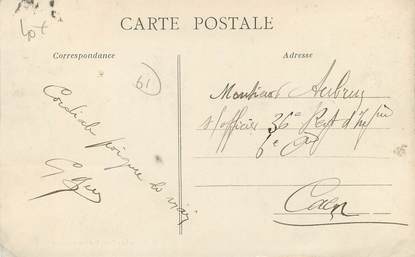 Lot
CARTE POSTALE
Correspondance
Adresse
61
Cordiale poignée de main
Monsieur Aubry
s/officier 36e Régt d'Infie
6e Cie
Caen